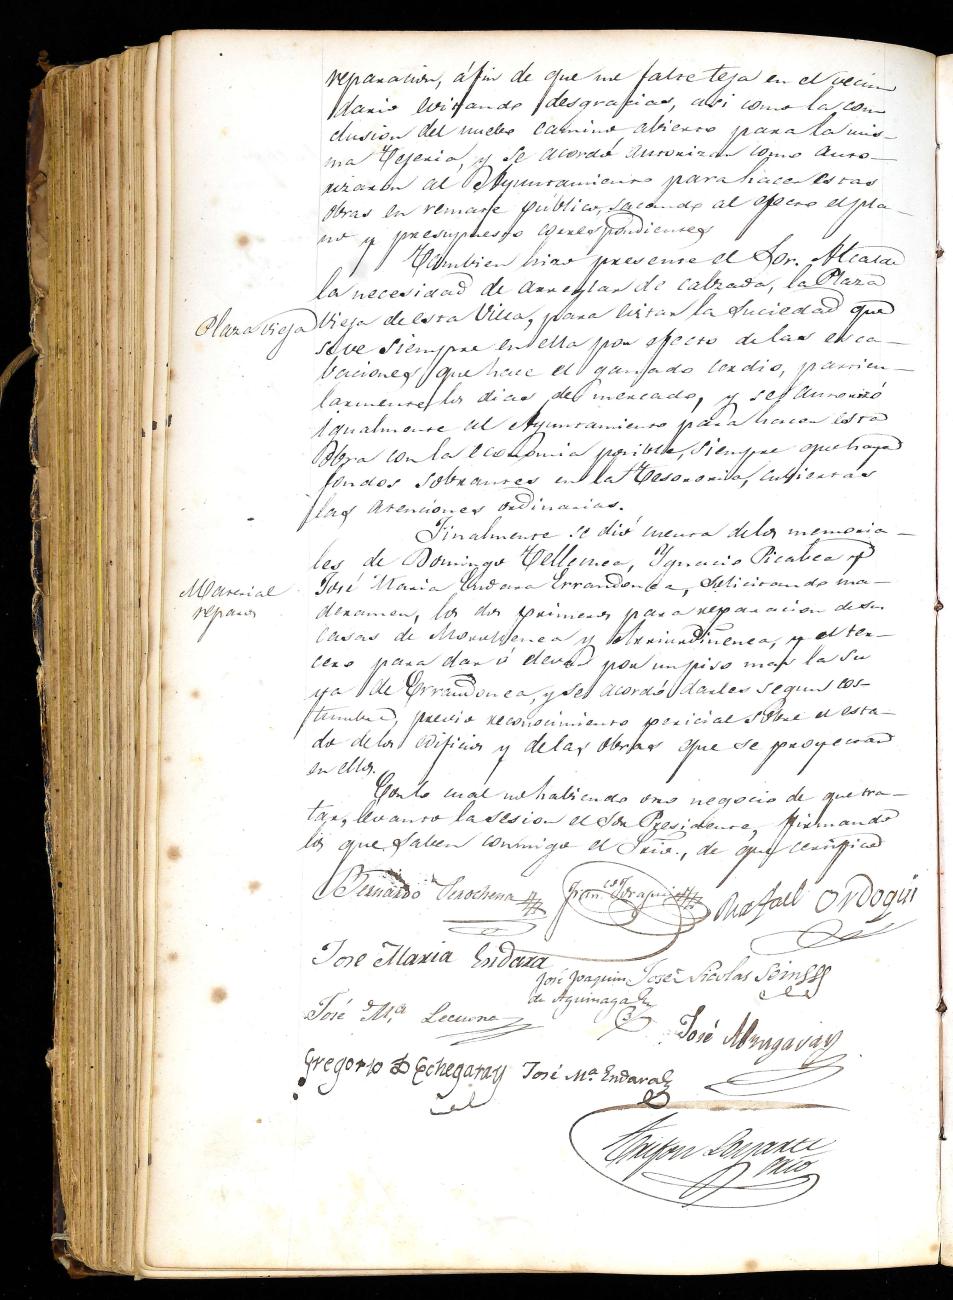 reparacion, áfin de que no falte teja en el vecin
dario evitando desgracias, asi como la con
clusion del nuebo camino abierto para la mis-
ma Tejeria, y se acordó autorizar como auto-
rizaron al Ayuntamiento para hacer estas
obras en remate público, sacando al efecto el pla-
no y presupuesto correspondientes
Tambien hizo presente el Sor. Alcalde
la necesidad de arreglar de calzada, la Plaza
Plaza vieja
vieja de esta Villa, para evitar la suciedad que
se ve siempre en ella por efecto de las esca-
baciones que hace el ganado cerdio, particu-
larmente los dias de mercado, y se autorizó
igualmente al Ayuntamiento para hacer esta
obra con la economia posible, siempre que haya
fondos sobrantes en la Tesoreria, cubiertas
las atenciones ordinarias.
Finalmente se dió cuenta de los memoria-
les de Domingo Tellechea, Ygnacio Picabea y
Material
reparos
José Maria Endara Errandonea, solicitando ma-
deramen, los dos primeros para reparacion de sus
casas de y, y el ter-
cero para dar ó elevar por un piso mas la su
ya de Errandonea, y se acordó darles segun cos-
tumbre, previo reconocimiento pericial sobre el esta-
do de los edificios y de las obras que se proyectan
en ellos.
Con lo cual no habiendo otro negocio de que tra-
tar, levantó la sesion el Sor Presidente, firmando
los que saben conmigo el Srio., de que certifico
Bernardo
Franco
Rafael Ordoqui
Jose Maria Endara
José Joaquin
de Aguinaga
José Nicolas
José Ma. Lecuona
José
Gregorio D Echegaray
José Ma. Endara
Srio